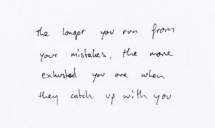 the longer you run from
your mistakes, the more
exhausted you are when
they catch up with you